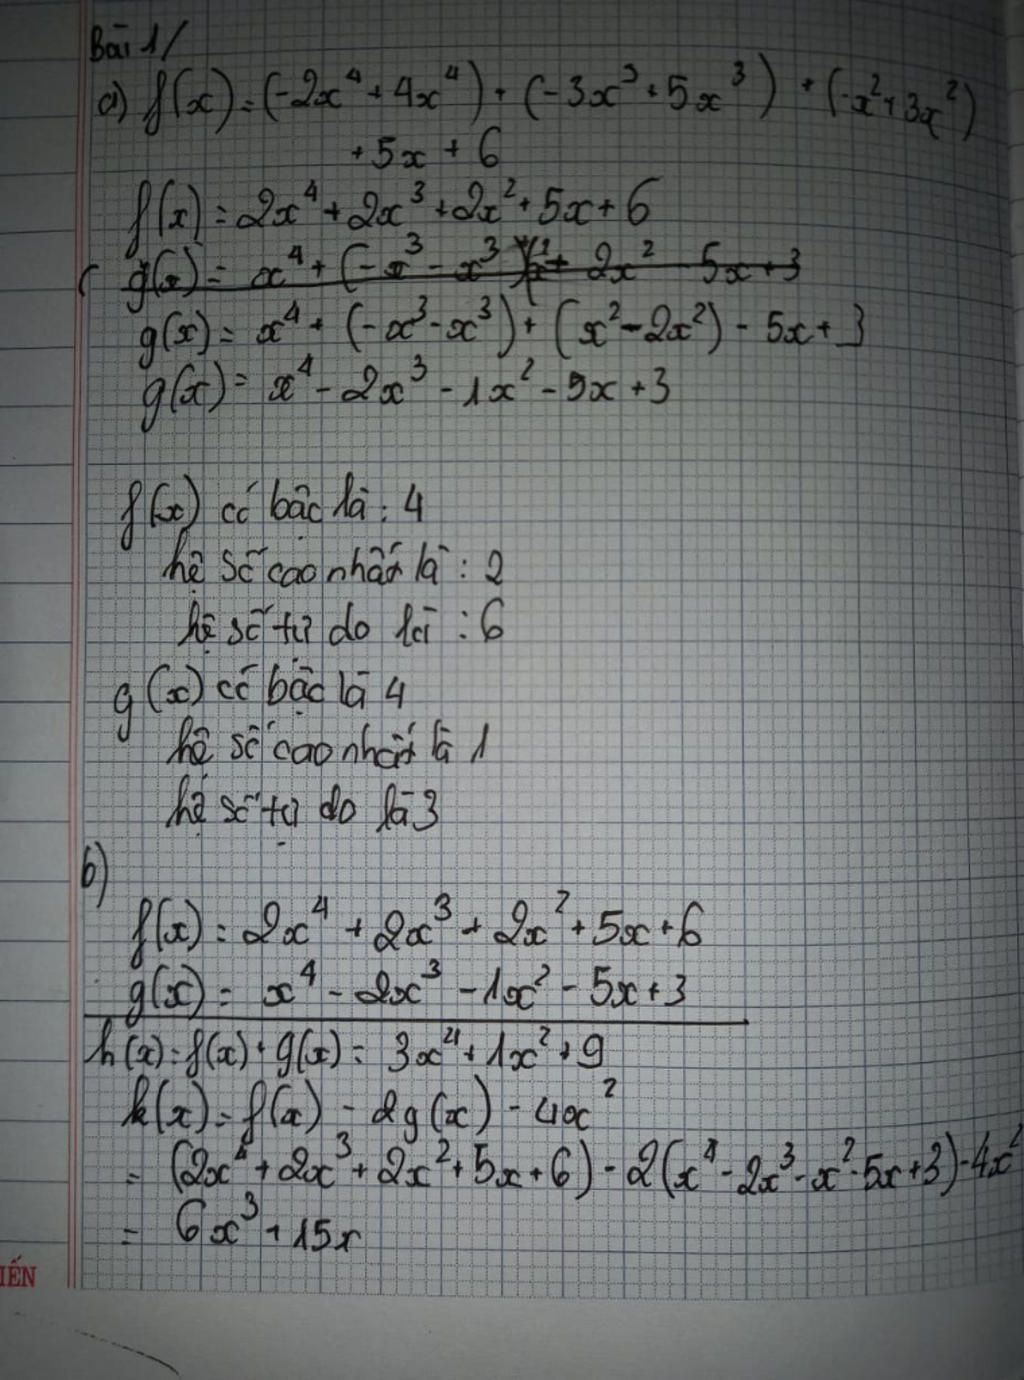 Bài 1/
a) f(x) = (-2x⁴ + 4x⁴) + (-3x³ + 5x³) + (-x² + 3x²)
+ 5x + 6
f(x) = 2x⁴ + 2x³ + 2x² + 5x + 6
g(x) = x⁴ + (-x³ - x³) + 2x² - 5x + 3
g(x) = x⁴ + (-x³ - x³) + (x² - 2x²) - 5x + 3
g(x) = x⁴ - 2x³ - 1x² - 5x + 3
f(x) có bậc là : 4
hệ số cao nhất là : 2
hệ số tự do là : 6
g(x) có bậc là 4
hệ số cao nhất là 1
hệ số tự do là 3
b)
f(x) = 2x⁴ + 2x³ + 2x² + 5x + 6
g(x) = x⁴ - 2x³ - 1x² - 5x + 3
h(x) = f(x) + g(x) = 3x⁴ + 1x² + 9
k(x) = f(x) - 2g(x) - 4x²
= (2x⁴ + 2x³ + 2x² + 5x + 6) - 2(x⁴ - 2x³ - x² - 5x + 3) - 4x²
= 6x³ + 15x
IẾN